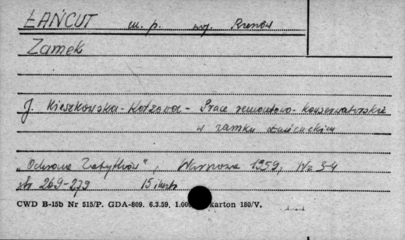 ŁAŃCUT m. p. woj. Rzeszów
Zamek
J. Kieszkowska-Kotzowa - Prace remontowo-konserwatorskie
w zamku łańcuckim
"Ochrona Zabytków", Warszawa 1959, Nr 3-4
str 269-279 15 ilustr.
CWD B-15b Nr 515/P. GDA-809. 6.3.59, 1.00 karton 180/V.